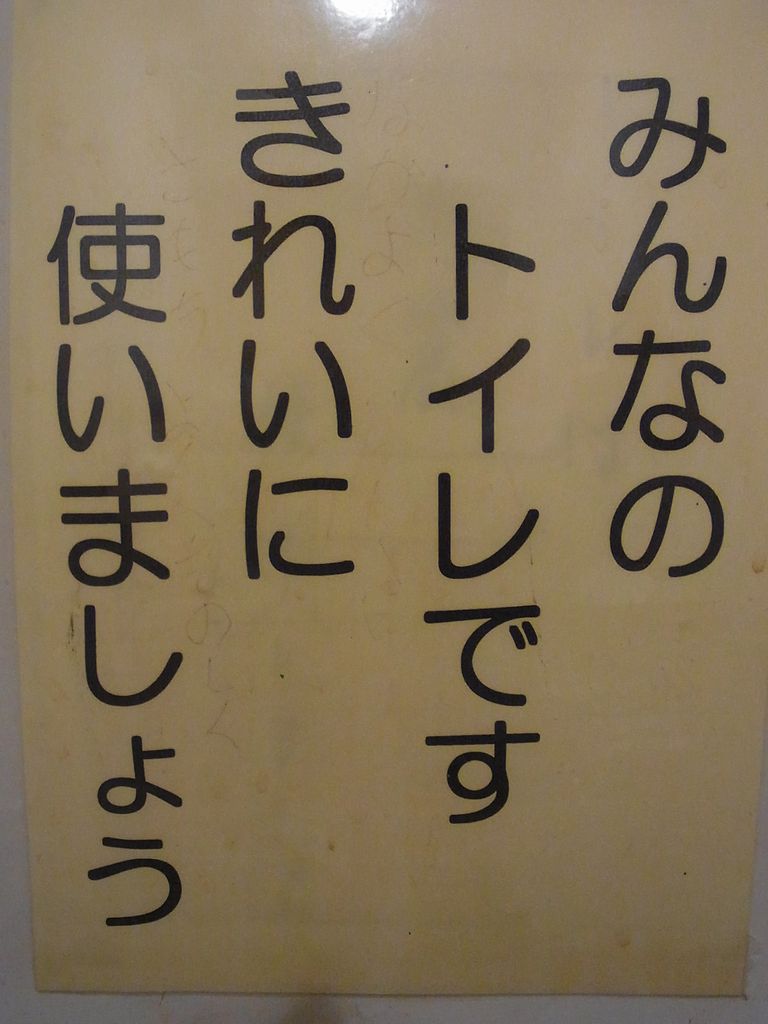 みんなの
トイレです
きれいに
使いましょう